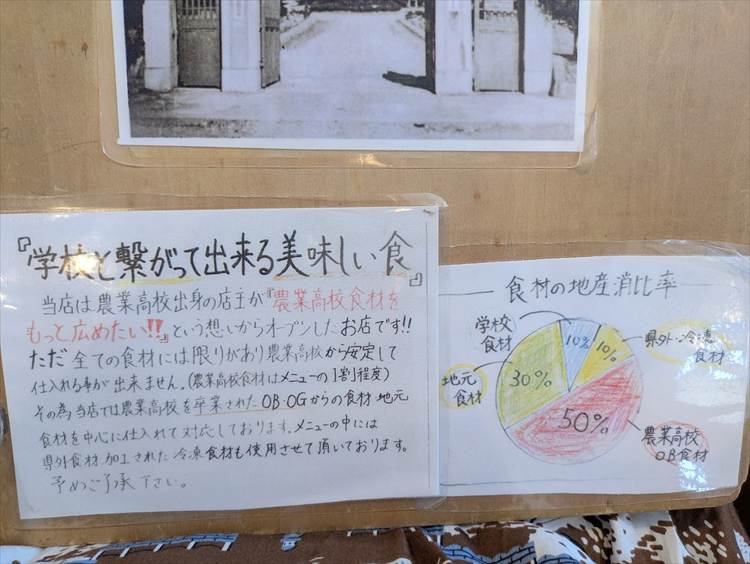 『学校と繋がって出来る美味しい食』
当店は農業高校出身の店主が『農業高校食材を
もっと広めたい!!』という想いからオープンしたお店です!!
ただ全ての食材には限りがあり農業高校から安定して
仕入れる事が出来ません。(農業高校食材はメニューの1割程度)
その為当店では農業高校を卒業されたOB・OGからの食材 地元
食材を中心に仕入れて対応しております。メニューの中には
県外食材、加工された冷凍食材も使用させて頂いております。
予めご了承下さい。
食材の地産消比率
学校食材
10%
県外・冷凍食材
10%
地元食材
30%
農業高校OB食材
50%